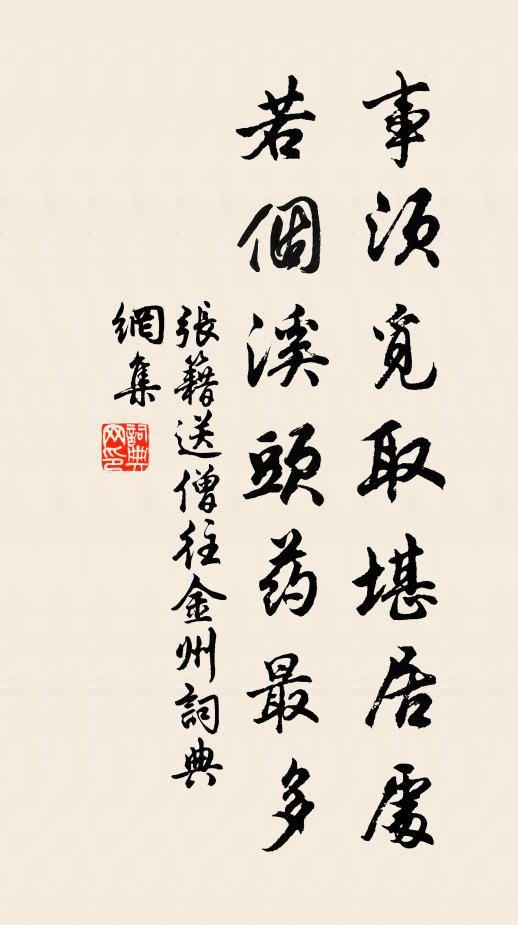 事须觅取堪居處
若個溪頭药最多
張籍送僧往金州詞典
網集
詞典
网印